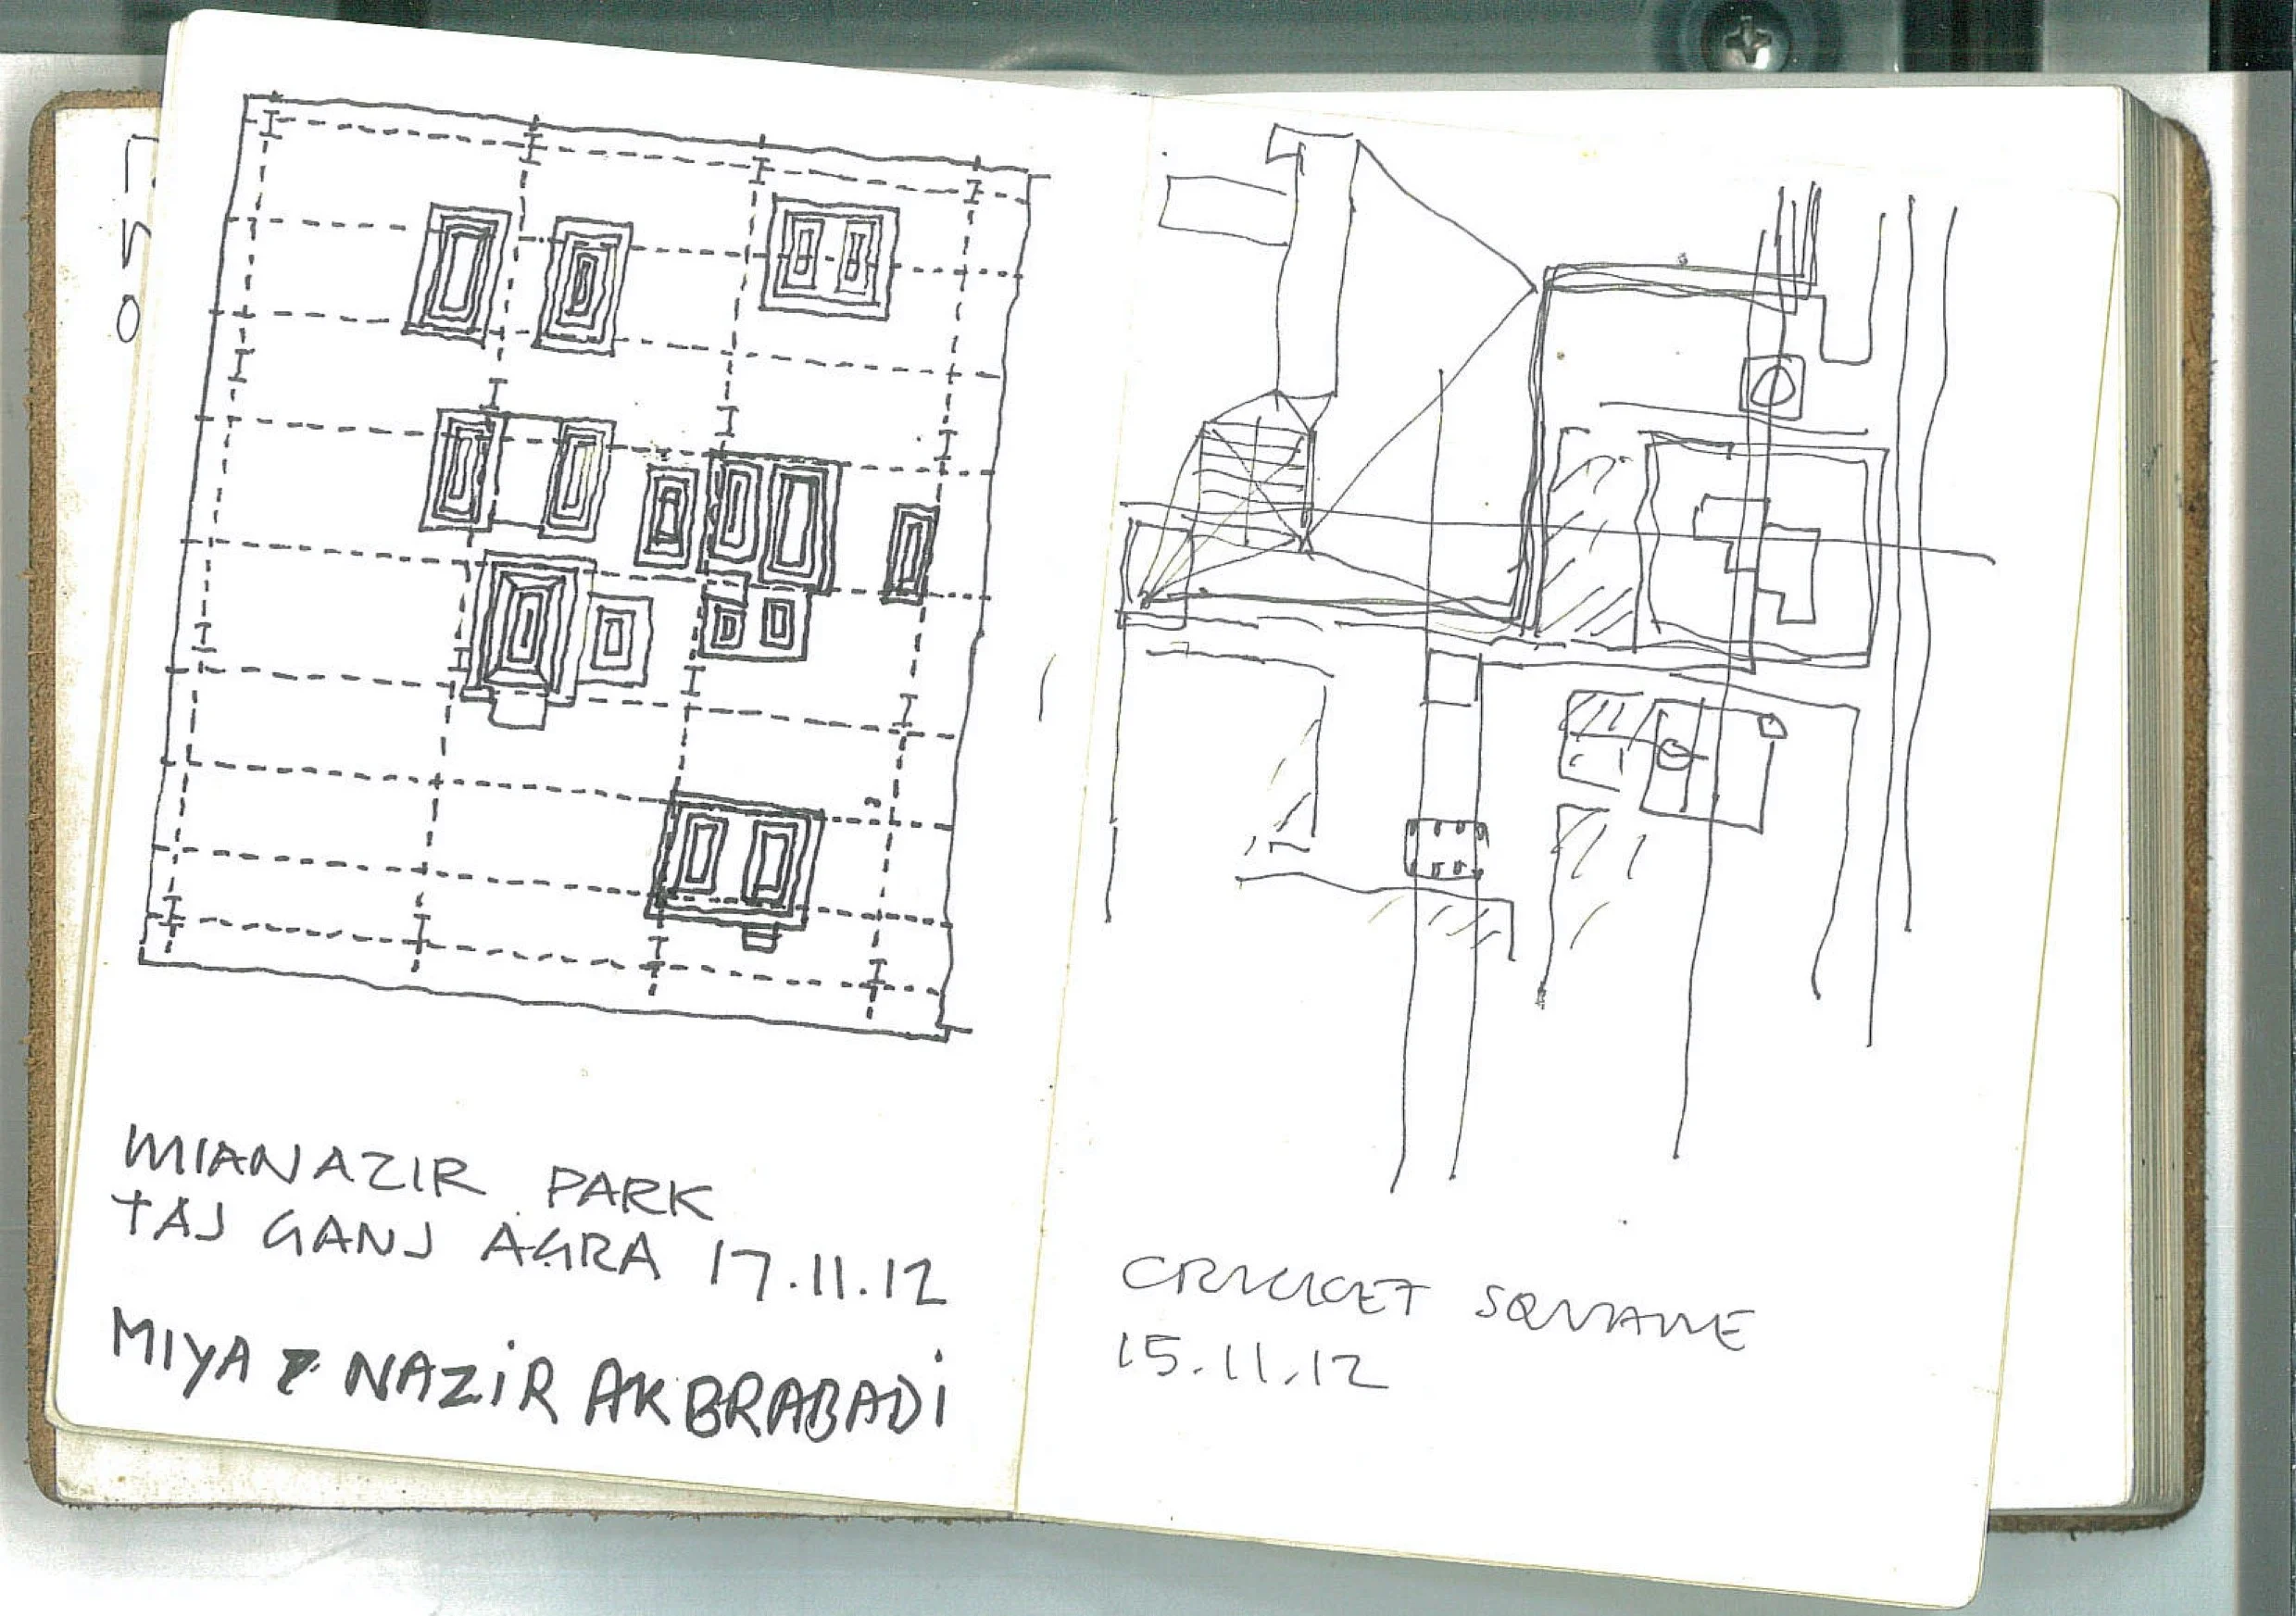 MIANAZIR PARK
TAJ GANJ AGRA 17.11.12
MIYA NAZIR AKBRABADI
CRICKET SQUARE
15.11.12